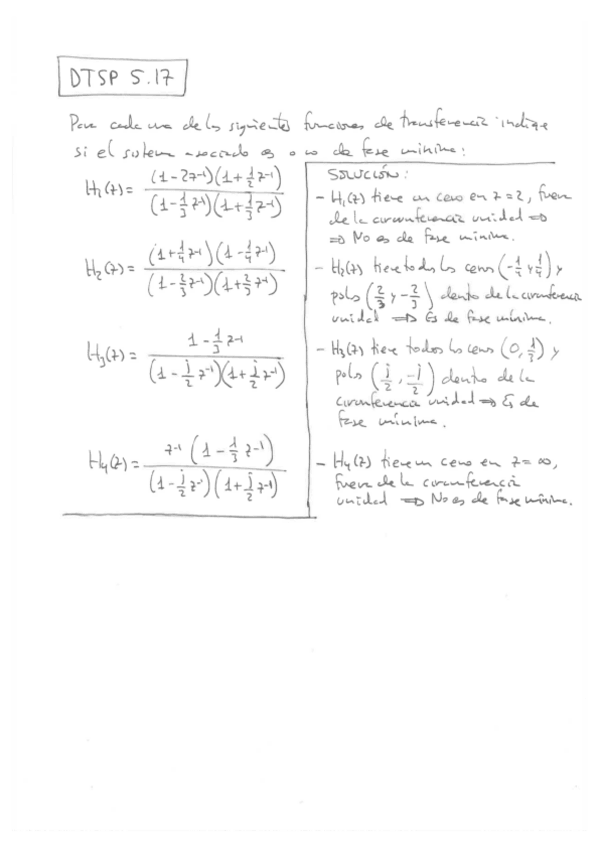 DTSP 5.17
Para cada una de las siguientes funciones de transferencia indique
si el sistema asociado es o no de fase mínima:
H₁(z) = (1 - 2z⁻¹)(1 + 1/2 z⁻¹) / (1 - 1/3 z⁻¹)(1 + 1/3 z⁻¹)
H₂(z) = (1 + 1/4 z⁻¹)(1 - 1/4 z⁻¹) / (1 - 2/3 z⁻¹)(1 + 2/3 z⁻¹)
H₃(z) = 1 - 1/3 z⁻¹ / (1 - j/2 z⁻¹)(1 + j/2 z⁻¹)
H₄(z) = z⁻¹ (1 - 1/3 z⁻¹) / (1 - j/2 z⁻¹)(1 + j/2 z⁻¹)
SOLUCIÓN:
- H₁(z) tiene un cero en z = 2, fuera
de la circunferencia unidad ⇒
⇒ No es de fase mínima.
- H₂(z) tiene todos los ceros (-1/4 y 1/4) y
polos (2/3 y -2/3) dentro de la circunferencia
unidad ⇒ Es de fase mínima.
- H₃(z) tiene todos los ceros (0, 1/3) y
polos (j/2, -j/2) dentro de la
circunferencia unidad ⇒ Es de
fase mínima.
- H₄(z) tiene un cero en z = ∞,
fuera de la circunferencia
unidad ⇒ No es de fase mínima.